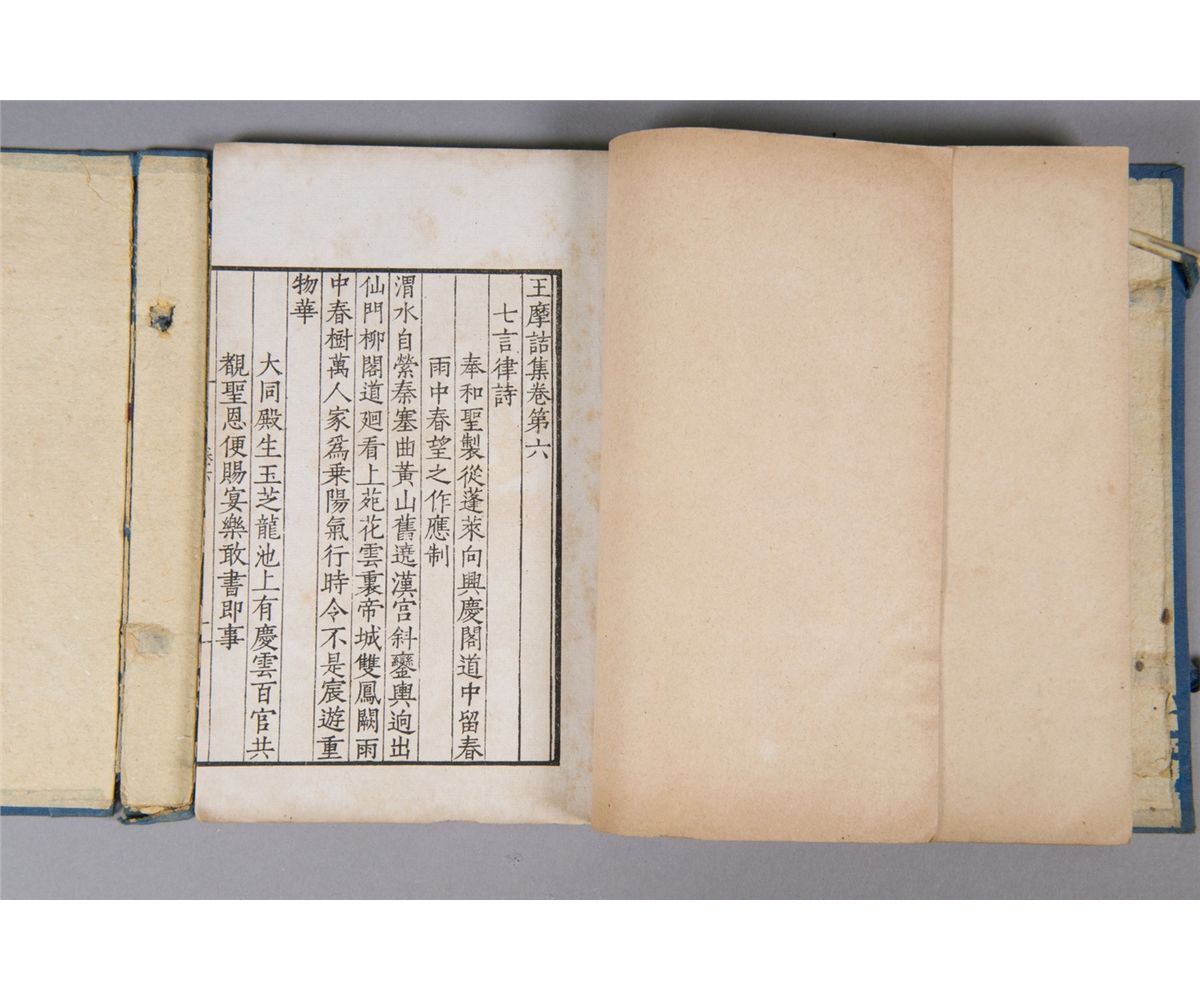 王摩詰集卷第六
七言律詩
奉和聖製從蓬萊向興慶閣道中留春
雨中春望之作應制
渭水自縈秦塞曲黃山舊遶漢宮斜鑾輿逈出
仙門柳閣道廻看上苑花雲裏帝城雙鳳闕雨
中春樹萬人家爲乗陽氣行時令不是宸遊重
物華
大同殿生玉芝龍池上有慶雲百官共
覩聖恩便賜宴樂敢書即事